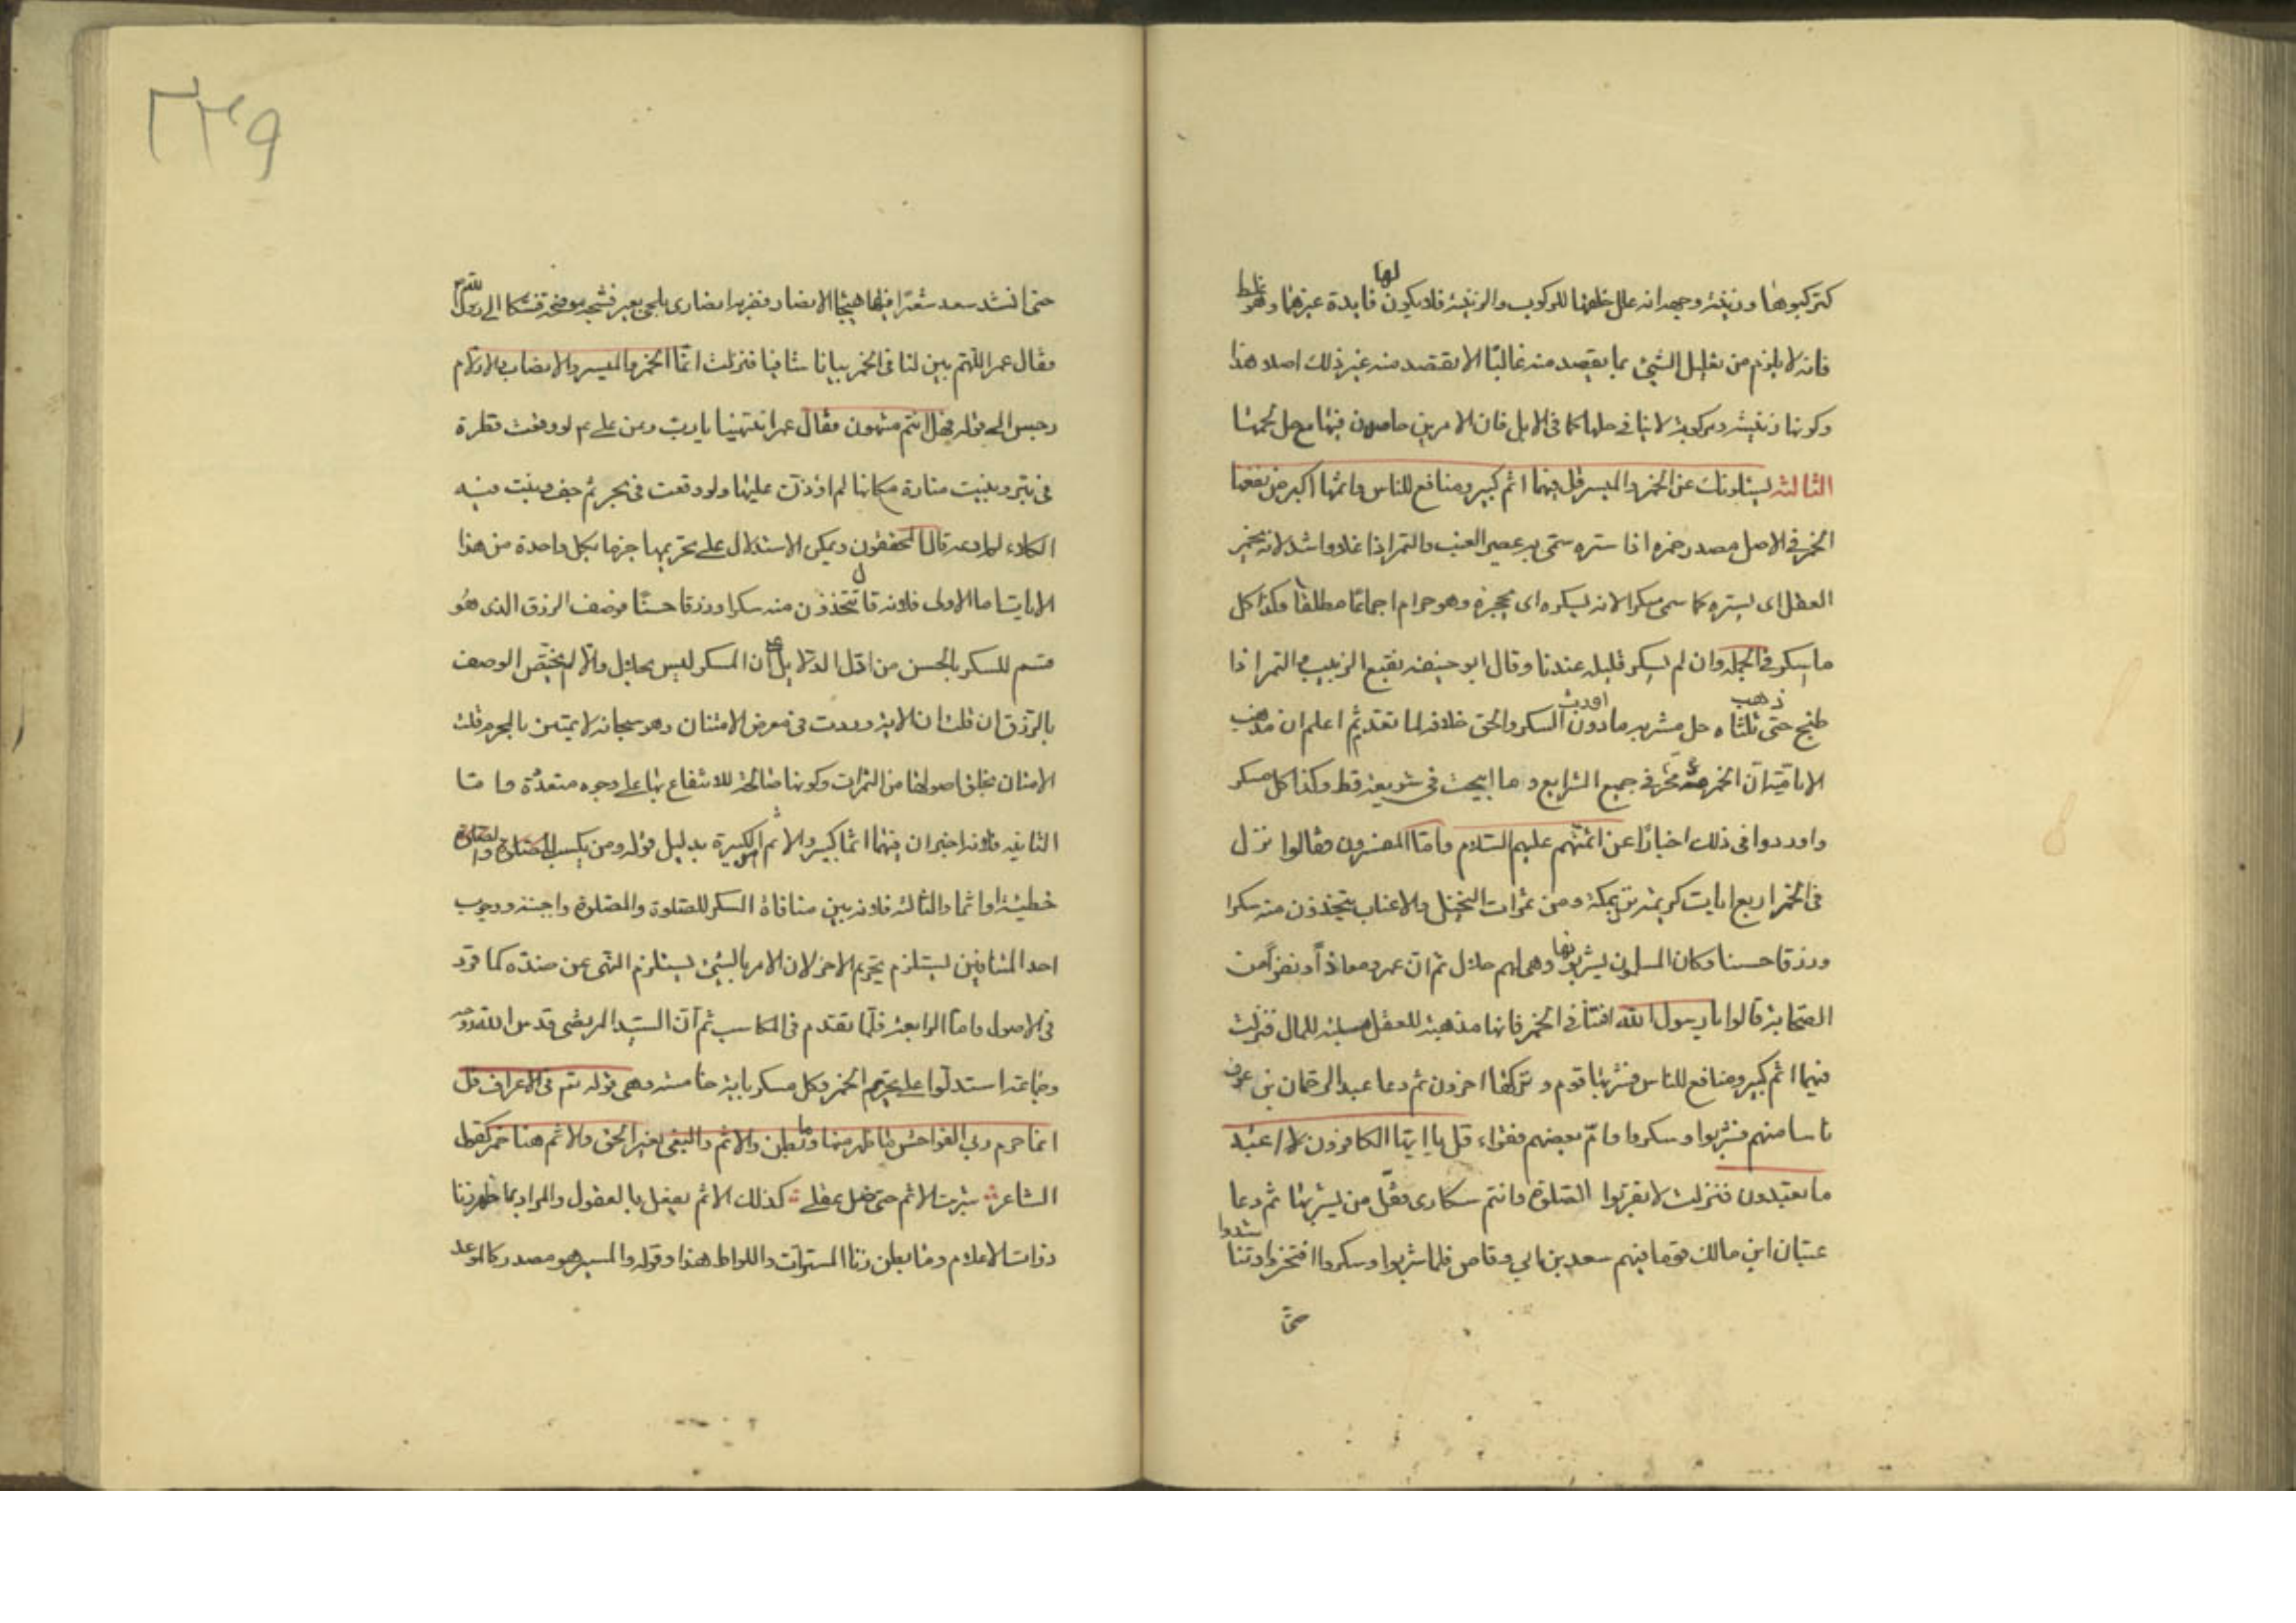 كتركبوها وزينة وجهه انه علل خلقها للركوب والزينة فلا يكون لها فايدة غيرهما وهو غلط
فانه لا يلزم من تعليل الشيئ بما يقصد منه غالبًا الا يقصد منه غير ذلك اصلا هذا
وكونها زينة ومركوبة لا ينافى حلها كما فى الابل فان الامرين حاصلان فيها مع حل لحمها
الثالثه يسئلونك عن الخمر والميسر قل فيهما اثم كبير ومنافع للناس واثمهما اكبر من نفعهما
الخمر فى الاصل مصدر خمره اذا ستره سمّى به عصير العنب والتمر اذا غلا واشتد لانه يخمر
العقل اى يستره كما سمى مسكرا لانه يسكره اى يحجزه وهو حرام اجماعًا مطلقا وكذا كل
ما يسكر فى الجمله وان لم يسكر قليله عندنا وقال ابو حنيفه نقيع الزبيب والتمر اذا
طبخ حتى ذهب ثلثاه حل مشربه ما دون السكر والحق خلافه لما تقدم ثم اعلم ان مذهب
الاماميّة انّ الخمر محرمة فى جميع الشرايع وما ابيحت فى شريعة قط وكذا كل مسكر
واوردوا فى ذلك اخبارًا عن ائمّتهم عليهم السّلام وامّا المفسرون فقالوا نزل
فى الخمر اربع ايات كريمة بمكة ومن ثمرات النخيل والاعناب تتخذون منه سكرا
ورزقا حسنا وكان المسلمون يشربونها وهى لهم حلال ثم انّ عمر ومعاذاً ونفراً من
الصّحابة قالوا يا رسول الله افتنا فى الخمر فانها مذهبة للعقل مسلبة للمال فنزلت
فيهما اثم كبير ومنافع للناس فشربها قوم وتركها اخرون ثم دعا عبد الرحمان بن عوف
ناسا منهم فشربوا وسكروا وامّ بعضهم فقراء قل يا ايّها الكافرون لا اعبد
ما تعبدون فنزلت لا تقربوا الصّلوة وانتم سكارى فقلّ من يشربها ثم دعا
عتبان ابن مالك قوما فيهم سعد بن ابي وقاص فلما شربوا وسكروا افتخروا وتناشدوا
حتى
٢٣٩
حتى انشد سعد شعرًا فيها هيجا الانصار فضربه انصارى بلحى بعير فشجه موضحة فشكا الى رسول الله
فقال عمر اللّهم بين لنا فى الخمر بيانا شافيا فنزلت انّما الخمر والميسر والانصاب والازلام
رجس الى قوله فهل انتم منتهون فقال عمر انتهينا يا ربّ وعن على ع م لو وقعت قطرة
فى بئر وبنيت منارة مكانها لم اؤذن عليها ولو وقعت فى بحر ثم جف ونبت فيه
الكلاء لم ارعه قال المحققون ويمكن الاستدلال على تحريمها جزما بكل واحدة من هذا
الايات اما الاولى فلانه قال تتخذون منه سكرا ورزقا حسنًا فوصف الرزق الذى هو
قسم للسكر بالحسن من ادل الدلايل على ان المسكر ليس بحلال والّا لم يختصّ الوصف
بالرّزق ان قلت ان الاية وردت فى معرض الامتنان وهو سبحانه لا يمتن بالمحرم قلت
الامتنان بخلق اصولها من الثمرات وكونها صالحة للانتفاع بها على وجوه متعدّدة واما
الثانيه فلانه اخبر ان فيهما اثما كبير والاثم الكبيرة بدليل قوله ومن يكسب
خطيئة او اثما والثالثه فلانه بين منافاة السكر للصّلوة والصّلوة واجبة ووجوب
احد المتنافيين يستلزم تحريم الاخر لان الامر بالشيئ يستلزم النّهى عن ضدّه كما قرر
فى الاصول وامّا الرابعة فلّما تقدم فى المكاسب ثم انّ السّيد المرتضى قدس الله روحه
وجماعة استدلّوا على تحريم الخمر وكل مسكر باية خامسة وهى قوله تع فى الاعراف قل
انما حرم ربي الفواحش ما ظهر منها وما بطن والاثم والبغى بغير الحق والاثم هنا خمر كقول
الشاعر شربت الاثم حتى ضل عقلى كذلك الاثم يفعل بالعقول والمراد بما ظهر زنا
ذوات الاعلام وما بطن زنا المستورات واللواط هذا وقوله والميسر هو مصدر كالموعد